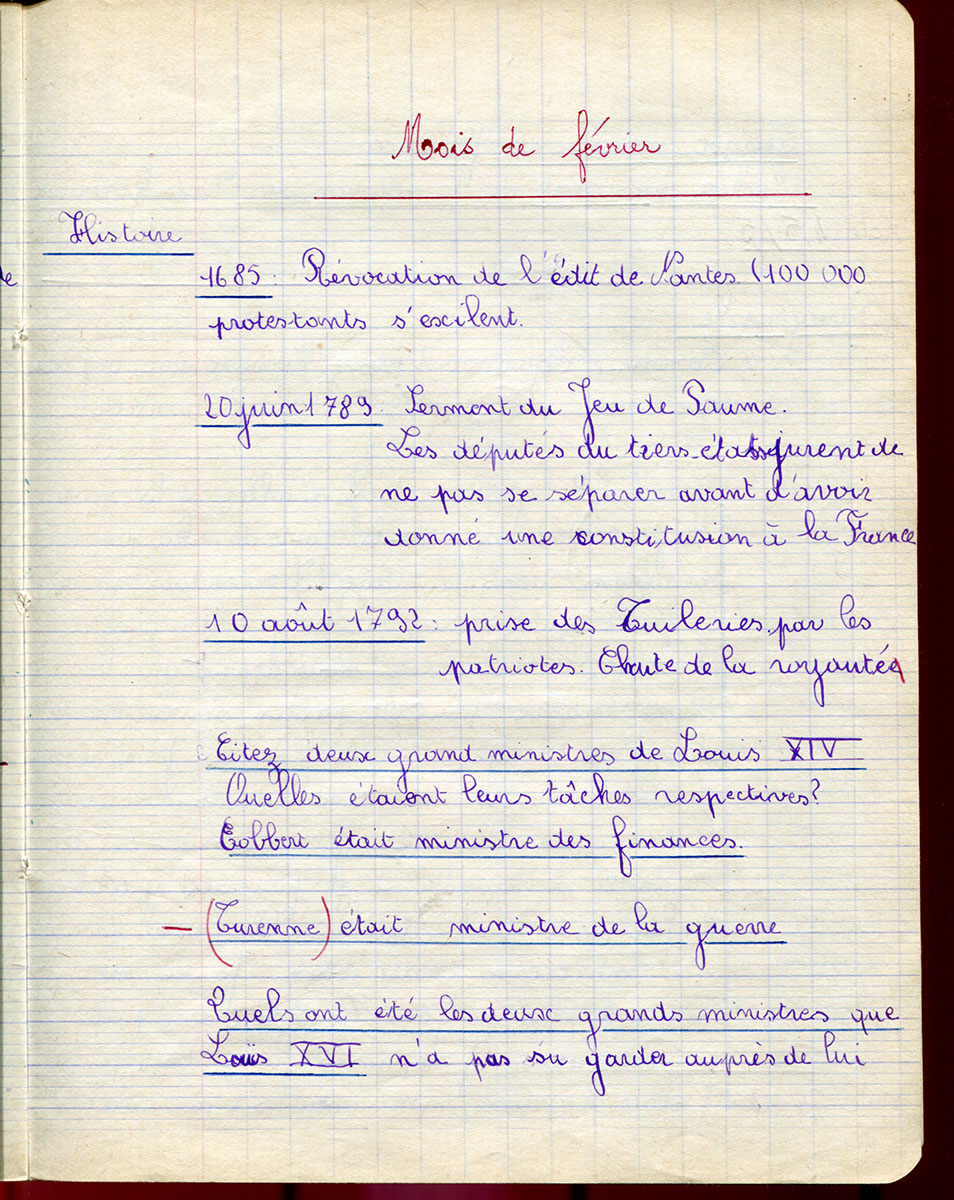 Mois de février
Histoire
1685 : Révocation de l'édit de Nantes (100 000
protestants s'exilent.
20 juin 1789. Serment du Jeu de Paume.
Les députés du tiers-états jurent de
ne pas se séparer avant d'avoir
donné une constitusion à la France
10 août 1792 : prise des Tuileries par les
patriotes. Chute de la royautée
Citez deux grand ministres de Louis XIV
Quelles étaient leurs tâches respectives?
Colbert était ministre des finances.
— (Turenne) était ministre de la guerre
Quels ont été les deux grands ministres que
Louis XVI n'a pas su garder auprès de lui